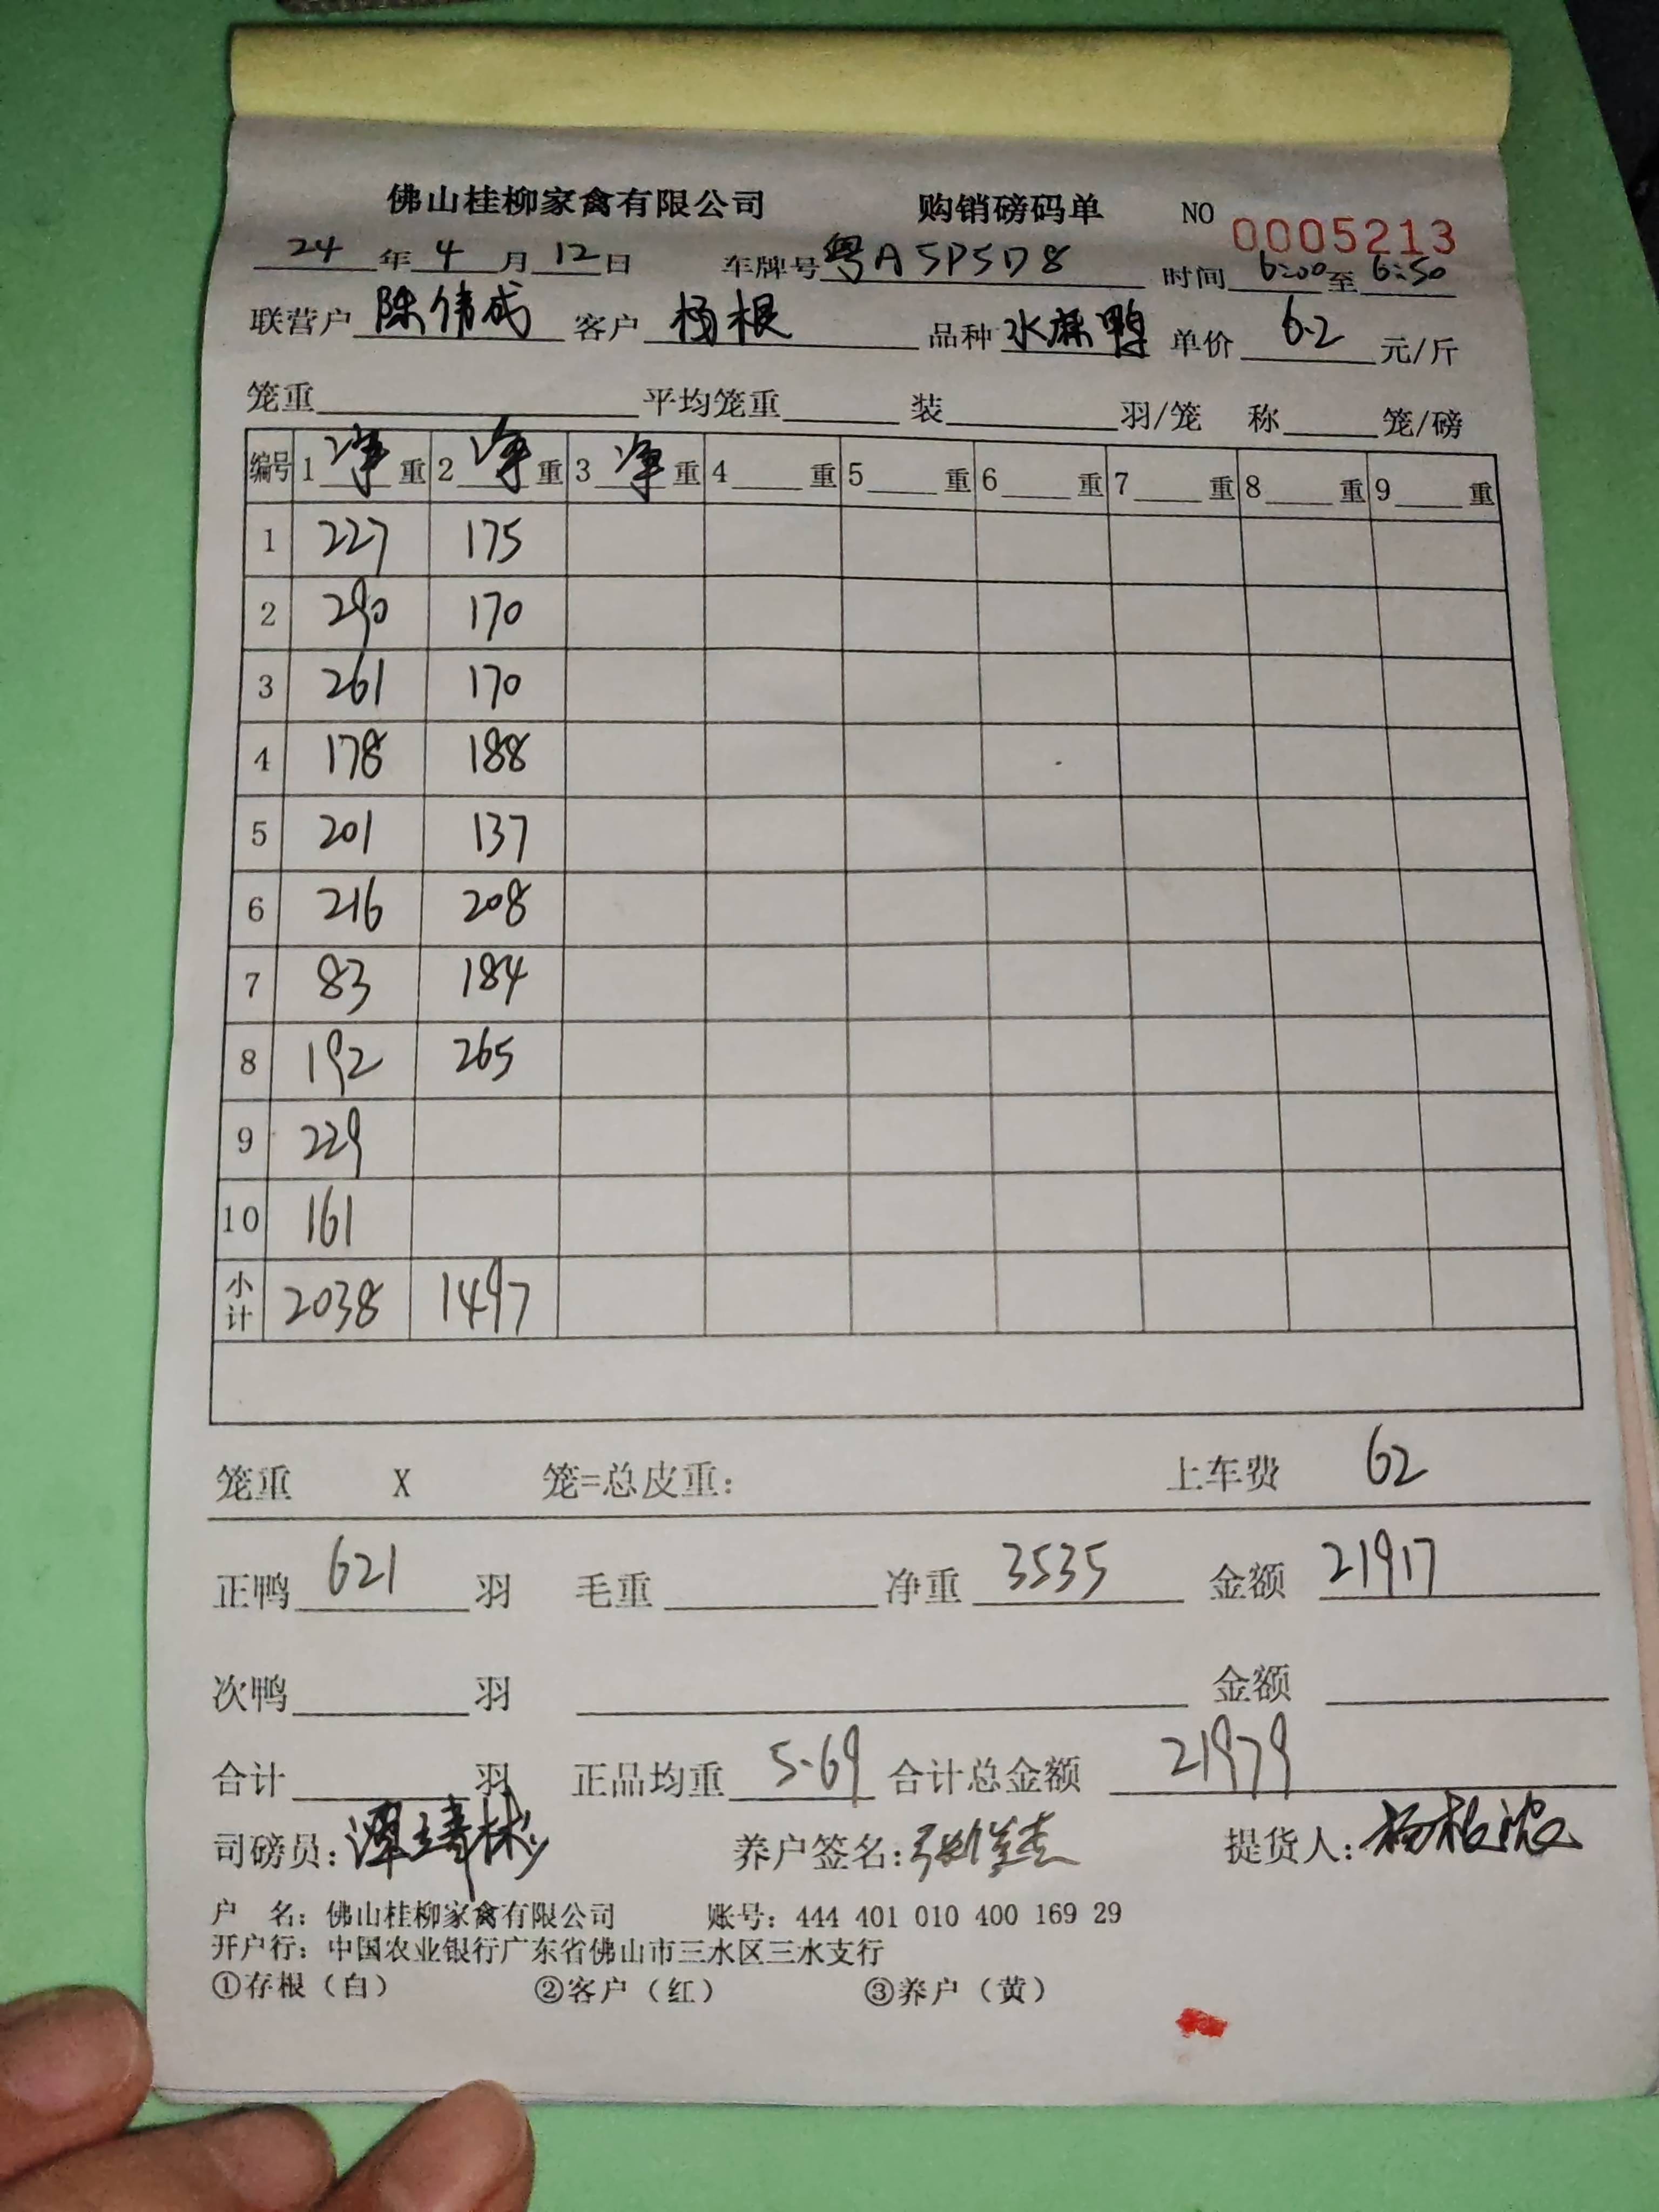 佛山桂柳家禽有限公司 购销磅码单 NO 0005213
24年4月12日 车牌号粤A5P5D8 时间6:00至6:50
联营户陈伟成 客户杨根 品种水麻鸭 单价6.2元/斤
笼重 平均笼重 装 羽/笼 称 笼/磅
编号 1净重 2净重 3净重 4重 5重 6重 7重 8重 9重
1 227 175
2 290 170
3 261 170
4 178 188
5 201 137
6 216 208
7 83 184
8 192 265
9 229
10 161
小计 2038 1497
笼重 X 笼=总皮重: 上车费 62
正鸭621羽 毛重 净重3535 金额21917
次鸭 羽 金额
合计 羽 正品均重5.69 合计总金额21979
司磅员: 养户签名: 提货人:
户 名: 佛山桂柳家禽有限公司 账号: 444 401 010 400 169 29
开户行: 中国农业银行广东省佛山市三水区三水支行
①存根（白） ②客户（红） ③养户（黄）